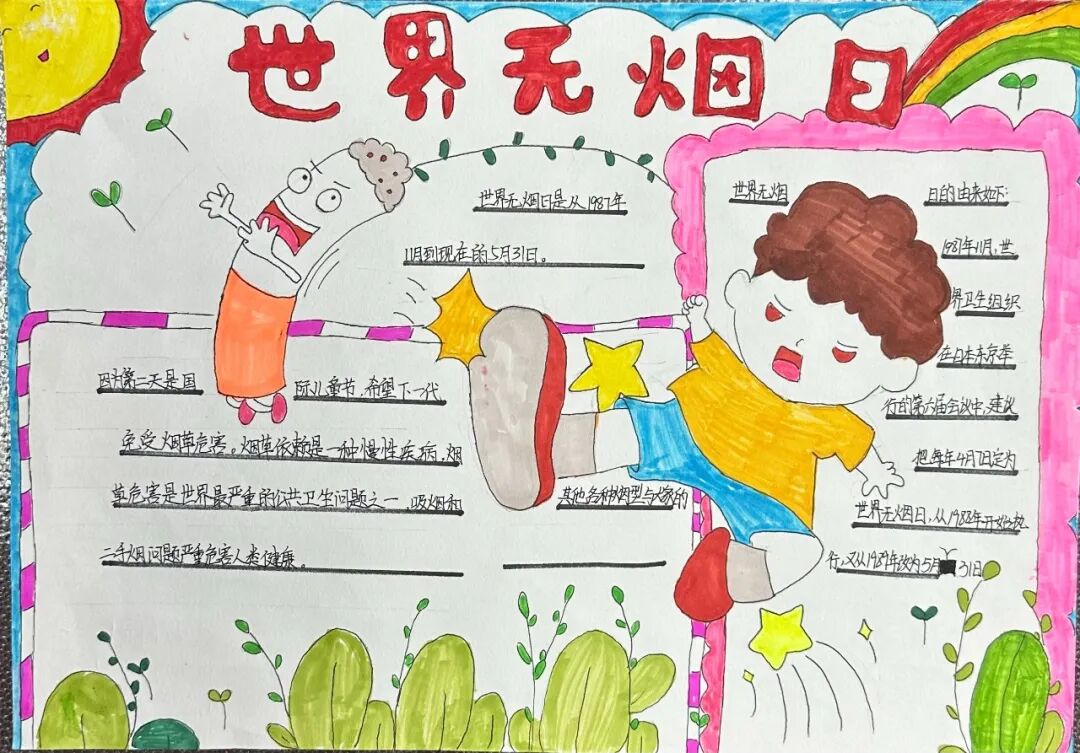 世界无烟日
世界无烟日是从1987年
11月到现在的5月31日。
因为第二天是国际儿童节,希望下一代
免受烟草危害。烟草依赖是一种慢性疾病,烟
草危害是世界最严重的公共卫生问题之一,吸烟和
其他各种烟型与火像的
二手烟问题严重危害人类健康。
世界无烟日的由来如下:
1987年11月,世
界卫生组织
在日本东京举
行的第六届会议中,建议
把每年4月7日定为
世界无烟日,从1988年开始执
行,又从1989年改为5月31日